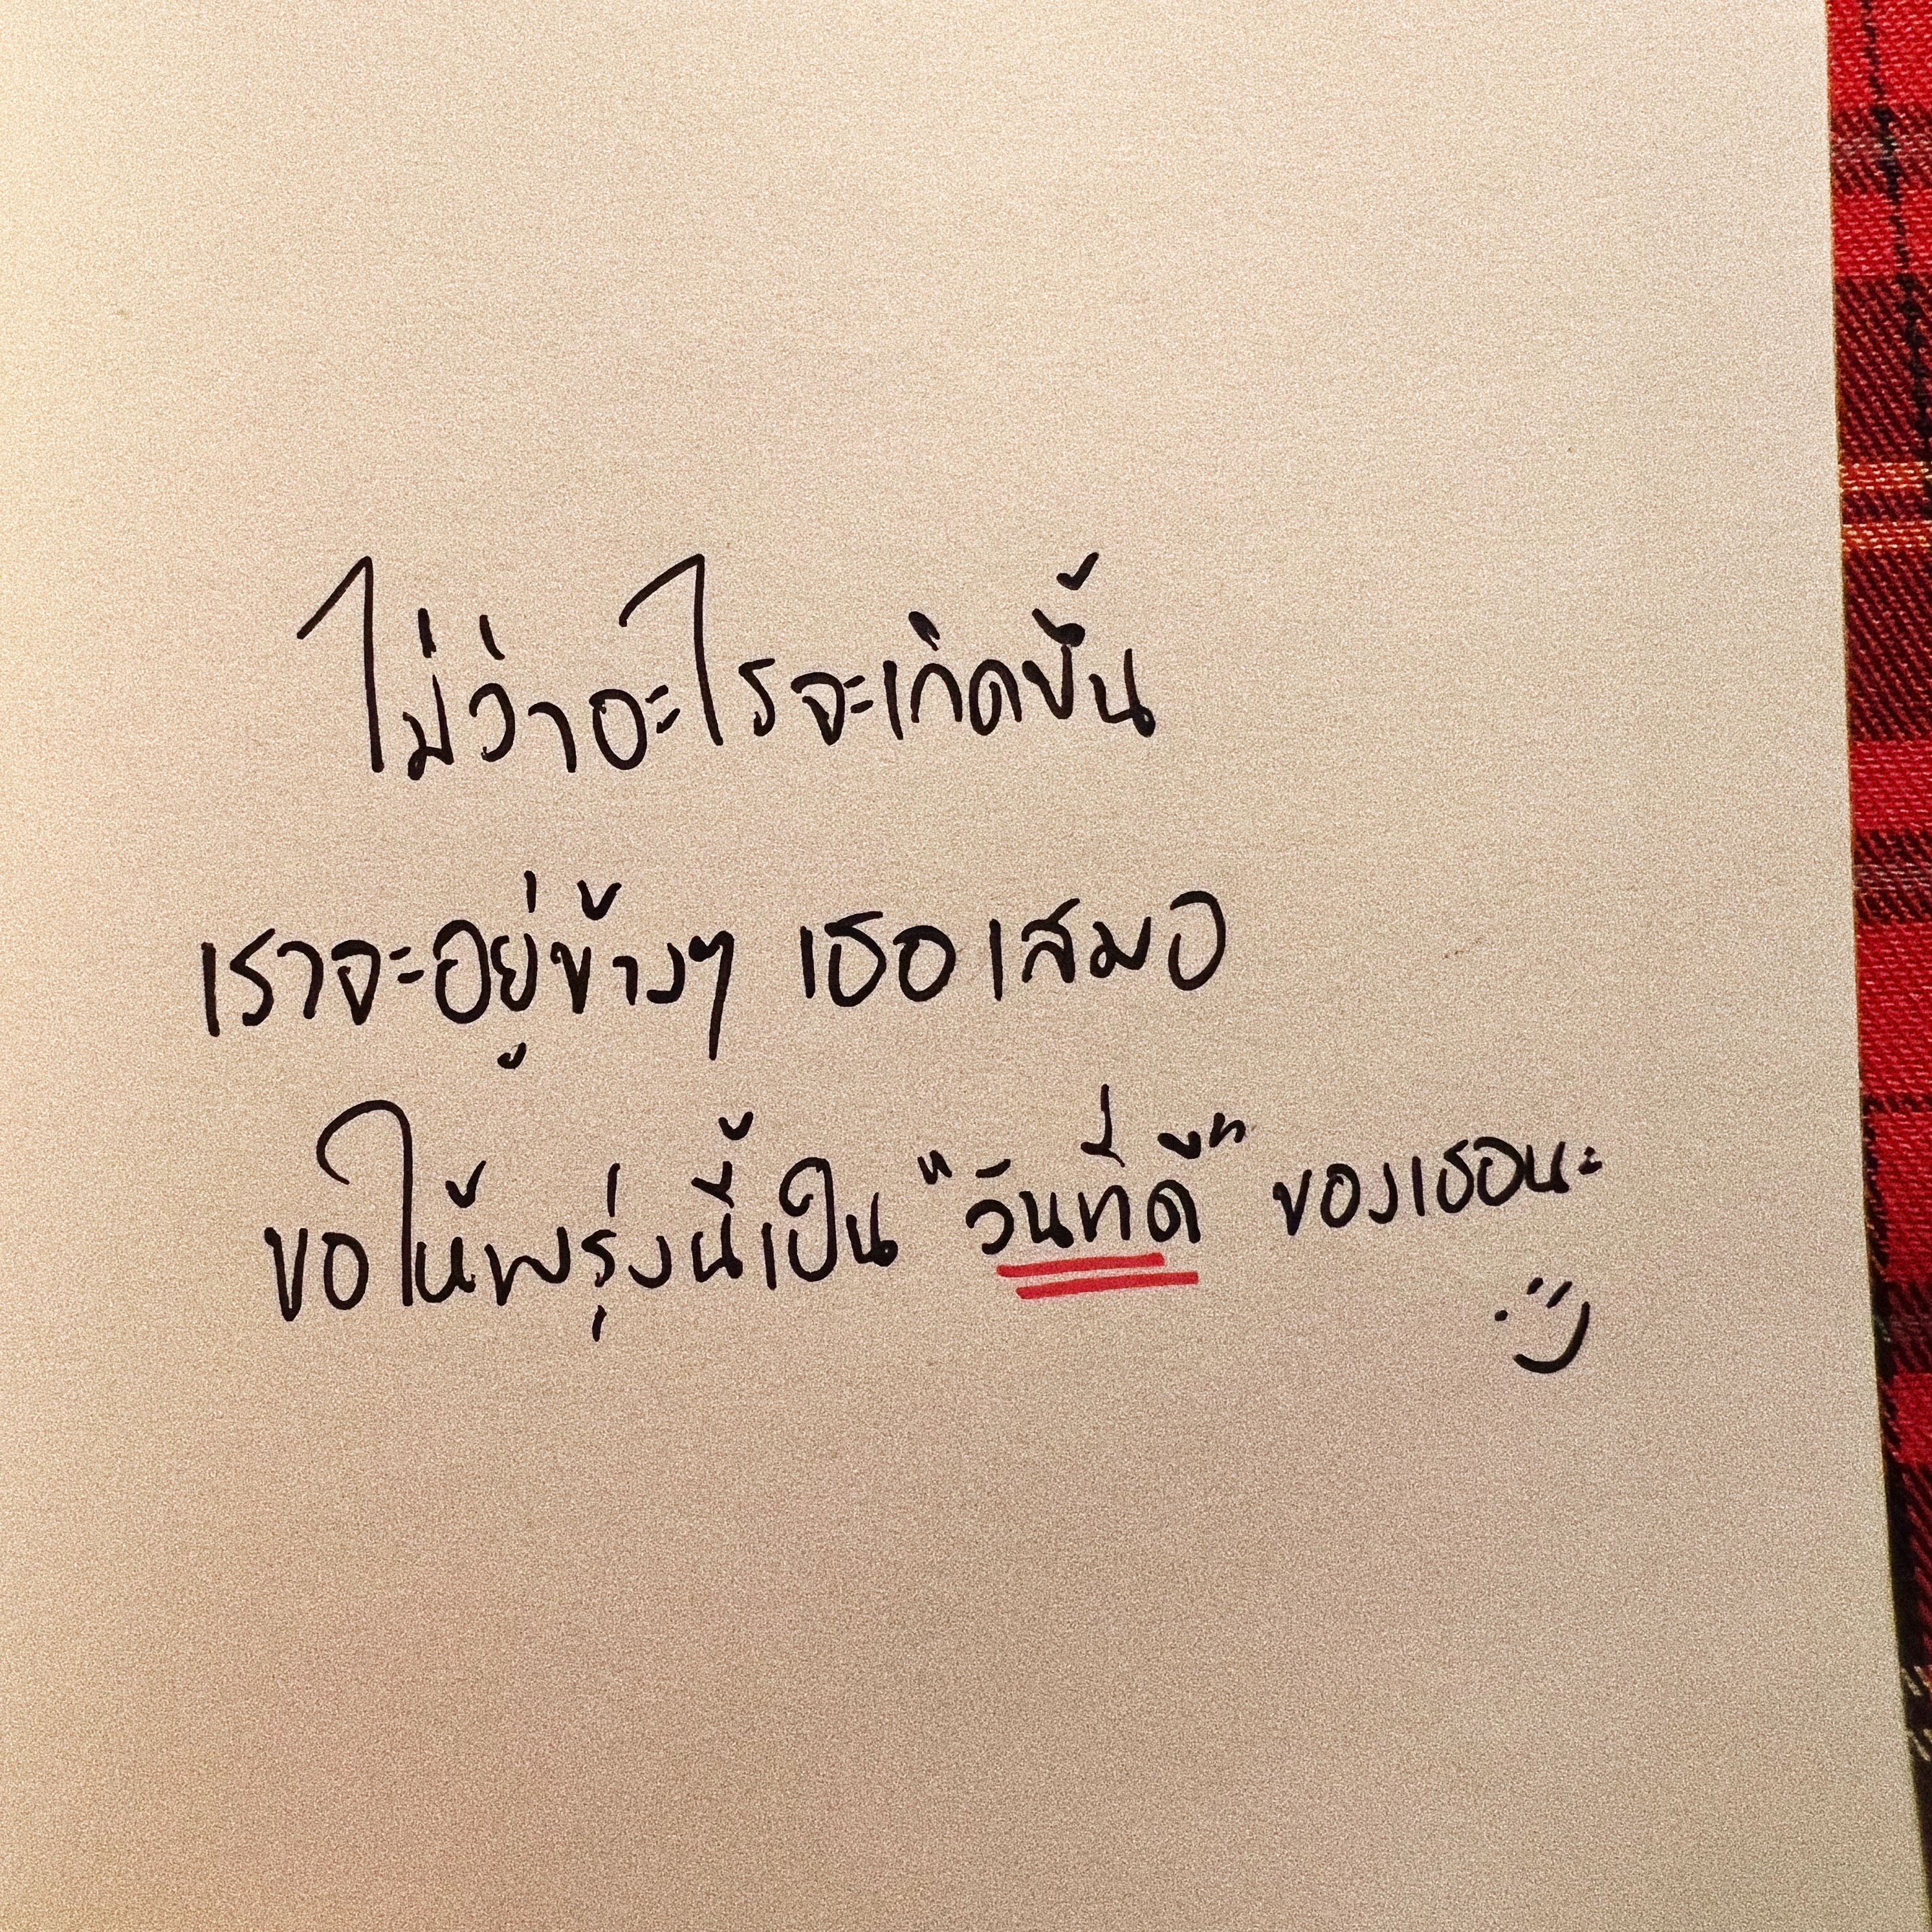 ไม่ว่าอะไรจะเกิดขึ้น
เราจะอยู่ข้างๆ เธอเสมอ
ขอให้พรุ่งนี้เป็น "วันที่ดี" ของเธอนะ